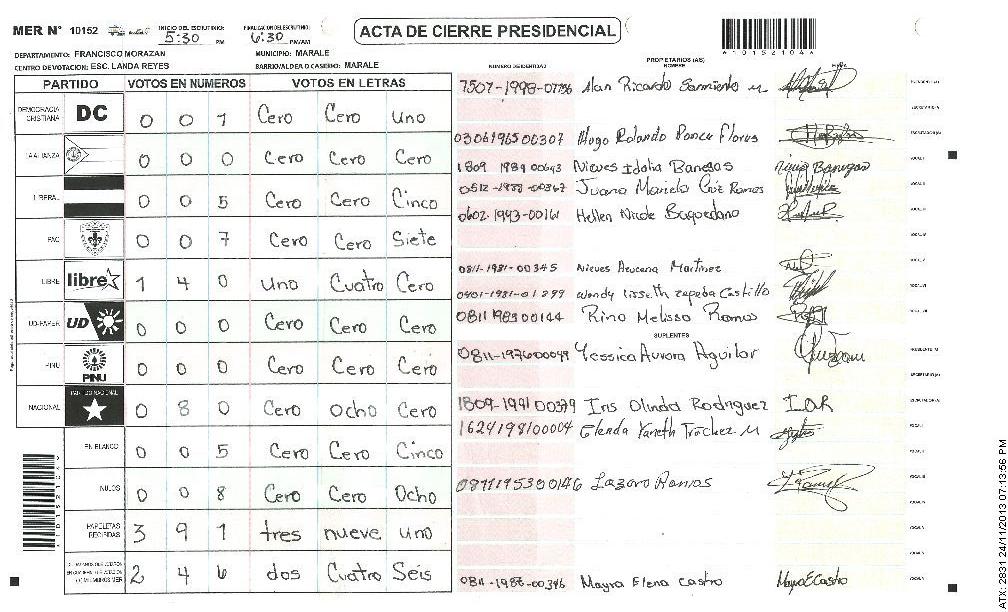 MER Nº 10152
INICIO DEL ESCRUTINIO: 5:30 PM
FINALIZACION DEL ESCRUTINIO: 6:30 PM/AM
ACTA DE CIERRE PRESIDENCIAL
A10152104A
DEPARTAMENTO: FRANCISCO MORAZAN
MUNICIPIO: MARALE
CENTRO DE VOTACION: ESC. LANDA REYES
BARRIO/ALDEA O CASERIO: MARALE
PARTIDO VOTOS EN NUMEROS VOTOS EN LETRAS
DEMOCRACIA CRISTIANA DC 0 0 1 Cero Cero Uno
LA ALIANZA 0 0 0 Cero Cero Cero
LIBERAL 0 0 5 Cero Cero Cinco
PAC 0 0 7 Cero Cero Siete
LIBRE libre 1 4 0 Uno Cuatro Cero
UD-FAPER UD 0 0 0 Cero Cero Cero
PINU PINU 0 0 0 Cero Cero Cero
NACIONAL PARTIDO NACIONAL 0 8 0 Cero Ocho Cero
EN BLANCO 0 0 5 Cero Cero Cinco
NULOS 0 0 8 Cero Cero Ocho
PAPELETAS RECIBIDAS 3 9 1 tres nueve uno
2 4 6 dos Cuatro Seis
NUMERO DE IDENTIDAD
PROPIETARIOS (AS)
NOMBRE
Alan Ricardo Sarmiento M
0306196500307 Hugo Rolando Ponce Flores
1809 1989 00643 Nieves Idalia Banegas
0512-1988-00367 Juana Mariela Cruz Ramos
0602-1993-00161 Hellen Nicole Baquedano
0811-1981-00345 Nieves Azucena Martinez
0401-1981-01299 Wendy Lisseth Zepeda Castillo
0811198300144 Rina Melissa Ramos
SUPLENTES
0811-197600049 Yessica Aurora Aguilar
1809-199100379 Iris Olinda Rodriguez IOR
1624198100004 Glenda Yaneth Tróchez M
0811195300146 Lazaro Ramos
0811-1988-00346 Mayra Elena Castro Mayra E Castro
ATX: 2831 24/11/2013 07:13:56 PM